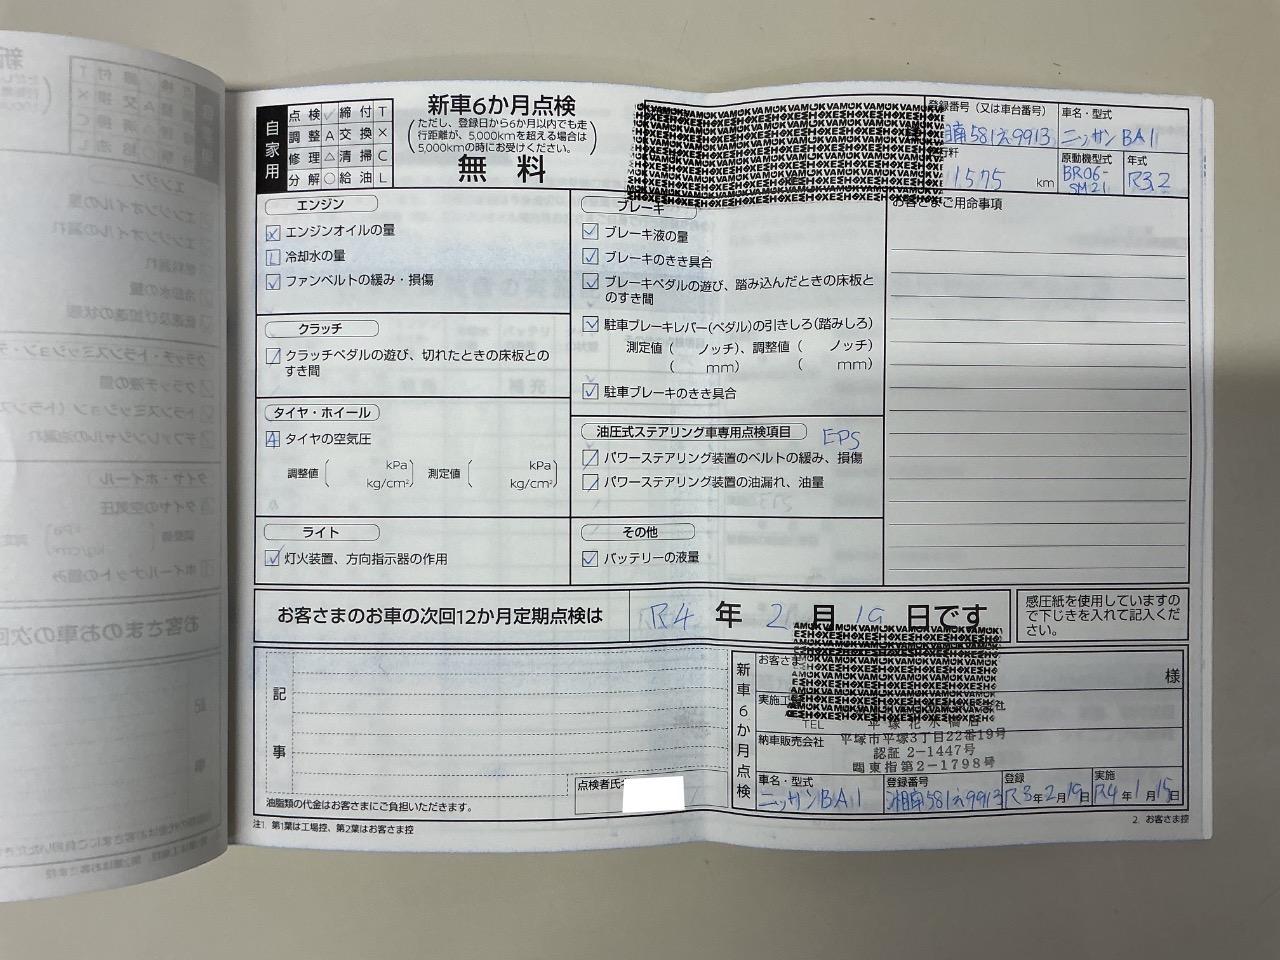 自家用
点検 ✓ 締付 T
調整 A 交換 ×
修理 △ 清掃 C
分解 ○ 給油 L
新車6か月点検
(ただし、登録日から6か月以内でも走
行距離が、5,000kmを超える場合は
5,000kmの時にお受けください。)
無料
登録番号（又は車台番号）
湘南581え9913
車名・型式
ニッサン BA11
1,575 km
原動機型式
BR06-
SM21
年式
R3.2
エンジン
エンジンオイルの量
冷却水の量
ファンベルトの緩み・損傷
クラッチ
クラッチペダルの遊び、切れたときの床板との
すき間
タイヤ・ホイール
タイヤの空気圧
調整値 ( kPa kg/cm² ) 測定値 ( kPa kg/cm² )
ライト
灯火装置、方向指示器の作用
ブレーキ
ブレーキ液の量
ブレーキのきき具合
ブレーキペダルの遊び、踏み込んだときの床板と
のすき間
駐車ブレーキレバー(ペダル)の引きしろ(踏みしろ)
測定値 ( ノッチ)、調整値 ( ノッチ)
( mm) ( mm)
駐車ブレーキのきき具合
油圧式ステアリング車専用点検項目 EPS
パワーステアリング装置のベルトの緩み、損傷
パワーステアリング装置の油漏れ、油量
その他
バッテリーの液量
お客さまご用命事項
お客さまのお車の次回12か月定期点検は R4 年 2 月 19 日です
感圧紙を使用していますの
で下じきを入れて記入くだ
さい。
記事
油脂類の代金はお客さまにご負担いただきます。
点検者氏名
新車6か月点検
お客さま 様
実施工
TEL 平塚花水橋店
納車販売会社 平塚市平塚3丁目22番19号
認証 2-1447号
関東指第2-1798号
車名・型式
ニッサンBA11
登録番号
湘南581え9913
登録
R3年2月19日
実施
R4年1月15日
注1. 第1葉は工場控、第2葉はお客さま控
2. お客さま控